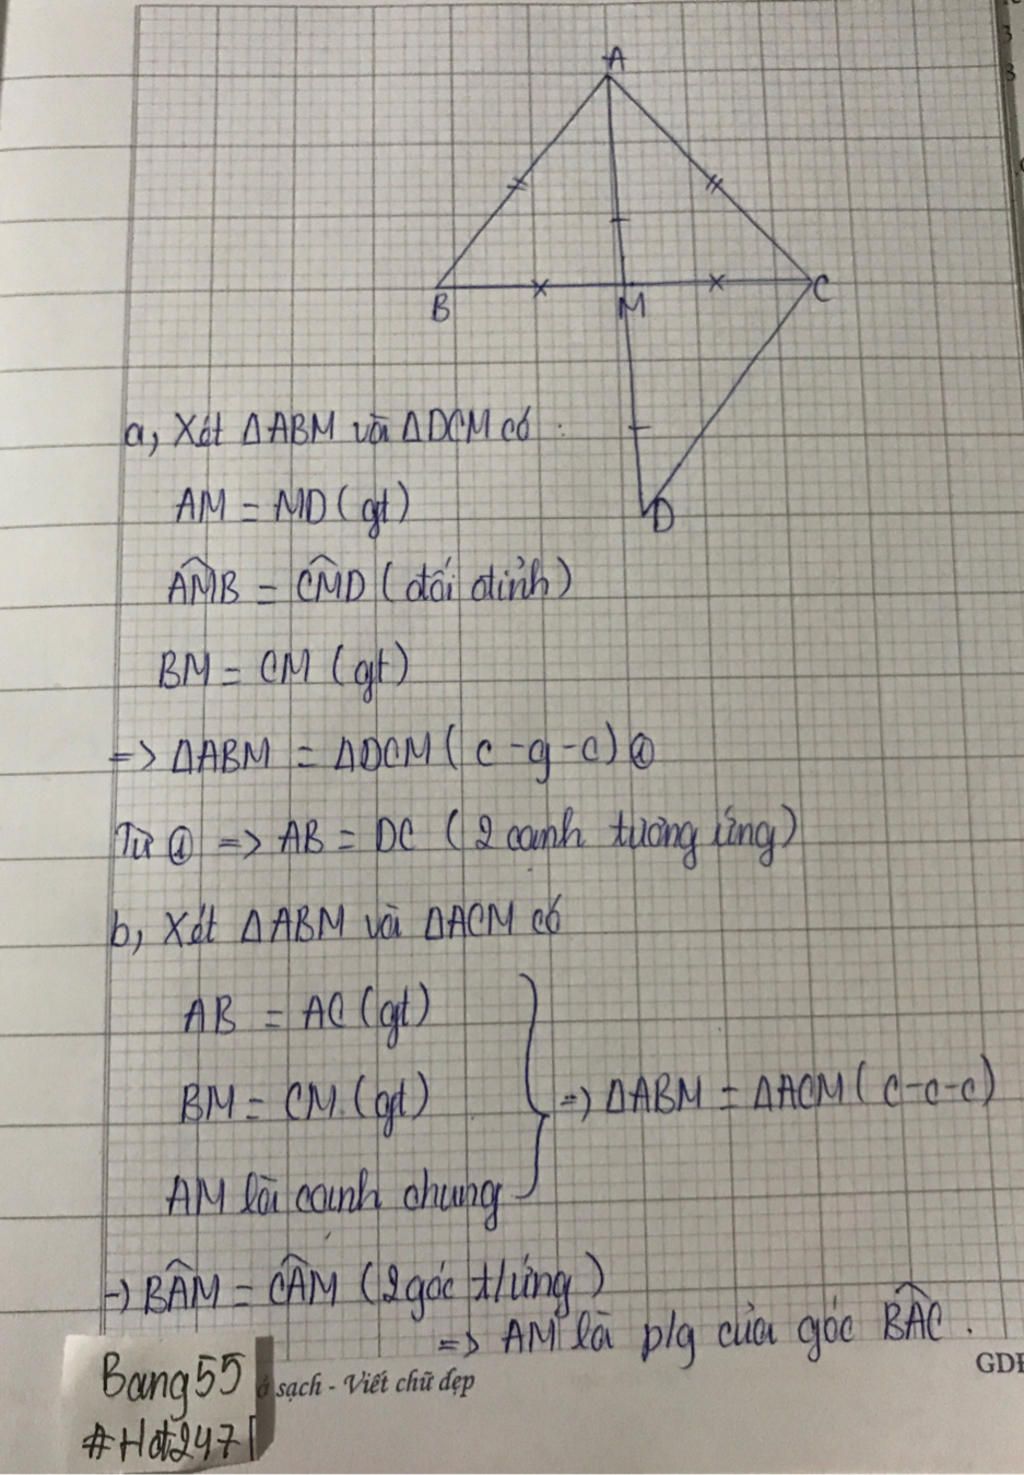 A
B
M
C
D
a, Xét ΔABM và ΔDCM có :
AM = MD (gt)
\widehat{AMB} = \widehat{CMD} (đối đỉnh)
BM = CM (gt)
=> ΔABM = ΔDCM (c-g-c) ①
Từ ① => AB = DC (2 cạnh tương ứng)
b, Xét ΔABM và ΔACM có
AB = AC (gt)
BM = CM (gt)
=> ΔABM = ΔACM (c-c-c)
AM là cạnh chung
-) \widehat{BAM} = \widehat{CAM} (2 góc t/ứng)
=> AM là p/g của góc \widehat{BAC}.
Bang55
#Hot247
sạch - Viết chữ đẹp